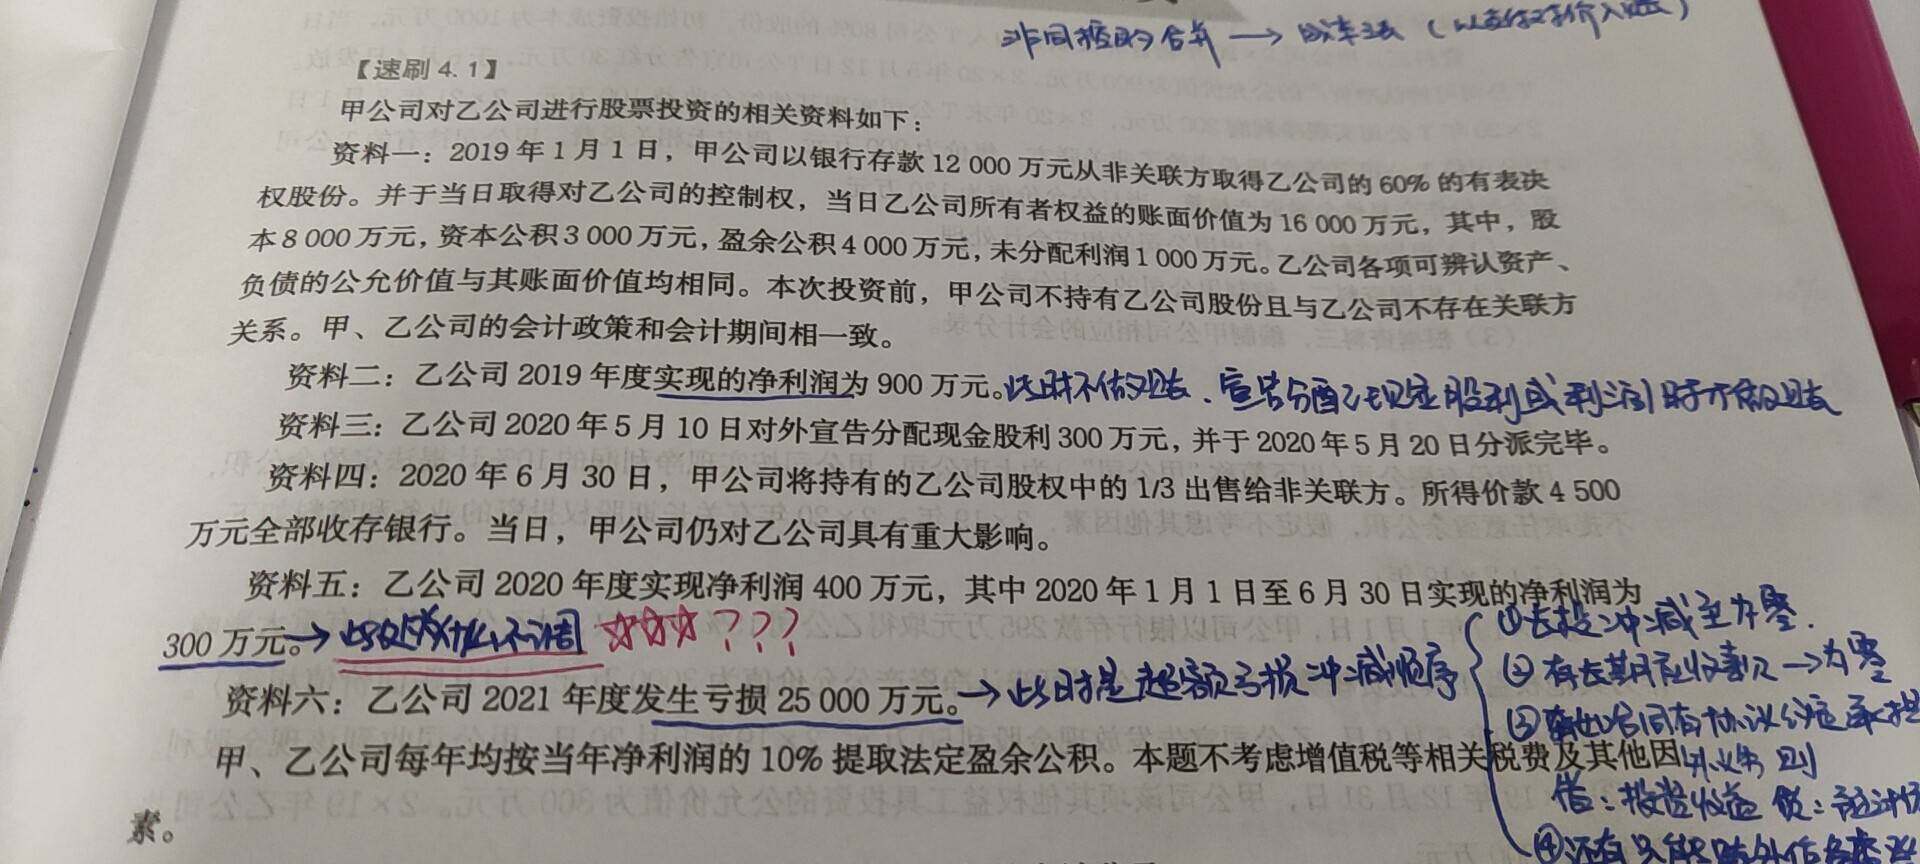 非同控的合并→成本法(以支付对价入账)
【速刷 4.1】
甲公司对乙公司进行股票投资的相关资料如下：
资料一：2019 年 1 月 1 日，甲公司以银行存款 12 000 万元从非关联方取得乙公司的 60% 的有表决
权股份。并于当日取得对乙公司的控制权，当日乙公司所有者权益的账面价值为 16 000 万元，其中，股
本 8 000 万元，资本公积 3 000 万元，盈余公积 4 000 万元，未分配利润 1 000 万元。乙公司各项可辨认资产、
负债的公允价值与其账面价值均相同。本次投资前，甲公司不持有乙公司股份且与乙公司不存在关联方
关系。甲、乙公司的会计政策和会计期间相一致。
资料二：乙公司 2019 年度实现的净利润为 900 万元。此时不做账、宣告分配现金股利或利润时才做账
资料三：乙公司 2020 年 5 月 10 日对外宣告分配现金股利 300 万元，并于 2020 年 5 月 20 日分派完毕。
资料四：2020 年 6 月 30 日，甲公司将持有的乙公司股权中的 1/3 出售给非关联方。所得价款 4 500
万元全部收存银行。当日，甲公司仍对乙公司具有重大影响。
资料五：乙公司 2020 年度实现净利润 400 万元，其中 2020 年 1 月 1 日至 6 月 30 日实现的净利润为
300 万元。→此处为什么不调☆☆☆???
①长投冲减至为零.
资料六：乙公司 2021 年度发生亏损 25 000 万元。→此时是超额亏损冲减顺序
②有长期应收款→为零
③合同有协议约定承担
甲、乙公司每年均按当年净利润的 10% 提取法定盈余公积。本题不考虑增值税等相关税费及其他因
义务 则
素。
借：投资收益 贷：预计
④还有